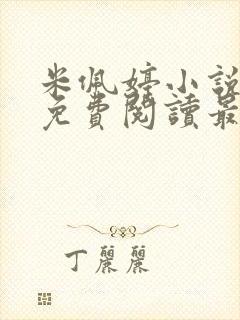 米佩婷小說
免費閱讀最
丁麗麗